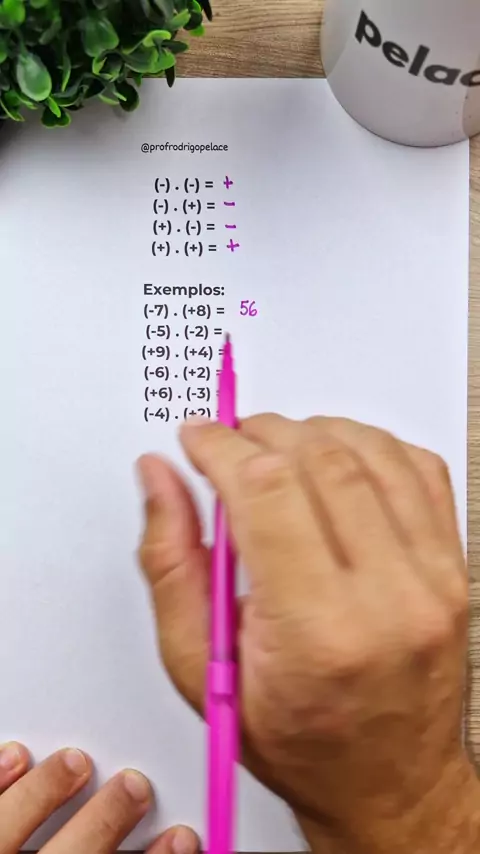 pelac
@profrodrigopelace
(-) . (-) = +
(-) . (+) = -
(+) . (-) = -
(+) . (+) = +
Exemplos:
(-7) . (+8) = 56
(-5) . (-2) =
(+9) . (+4) =
(-6) . (+2) =
(+6) . (-3) =
(-4) . (+2) =